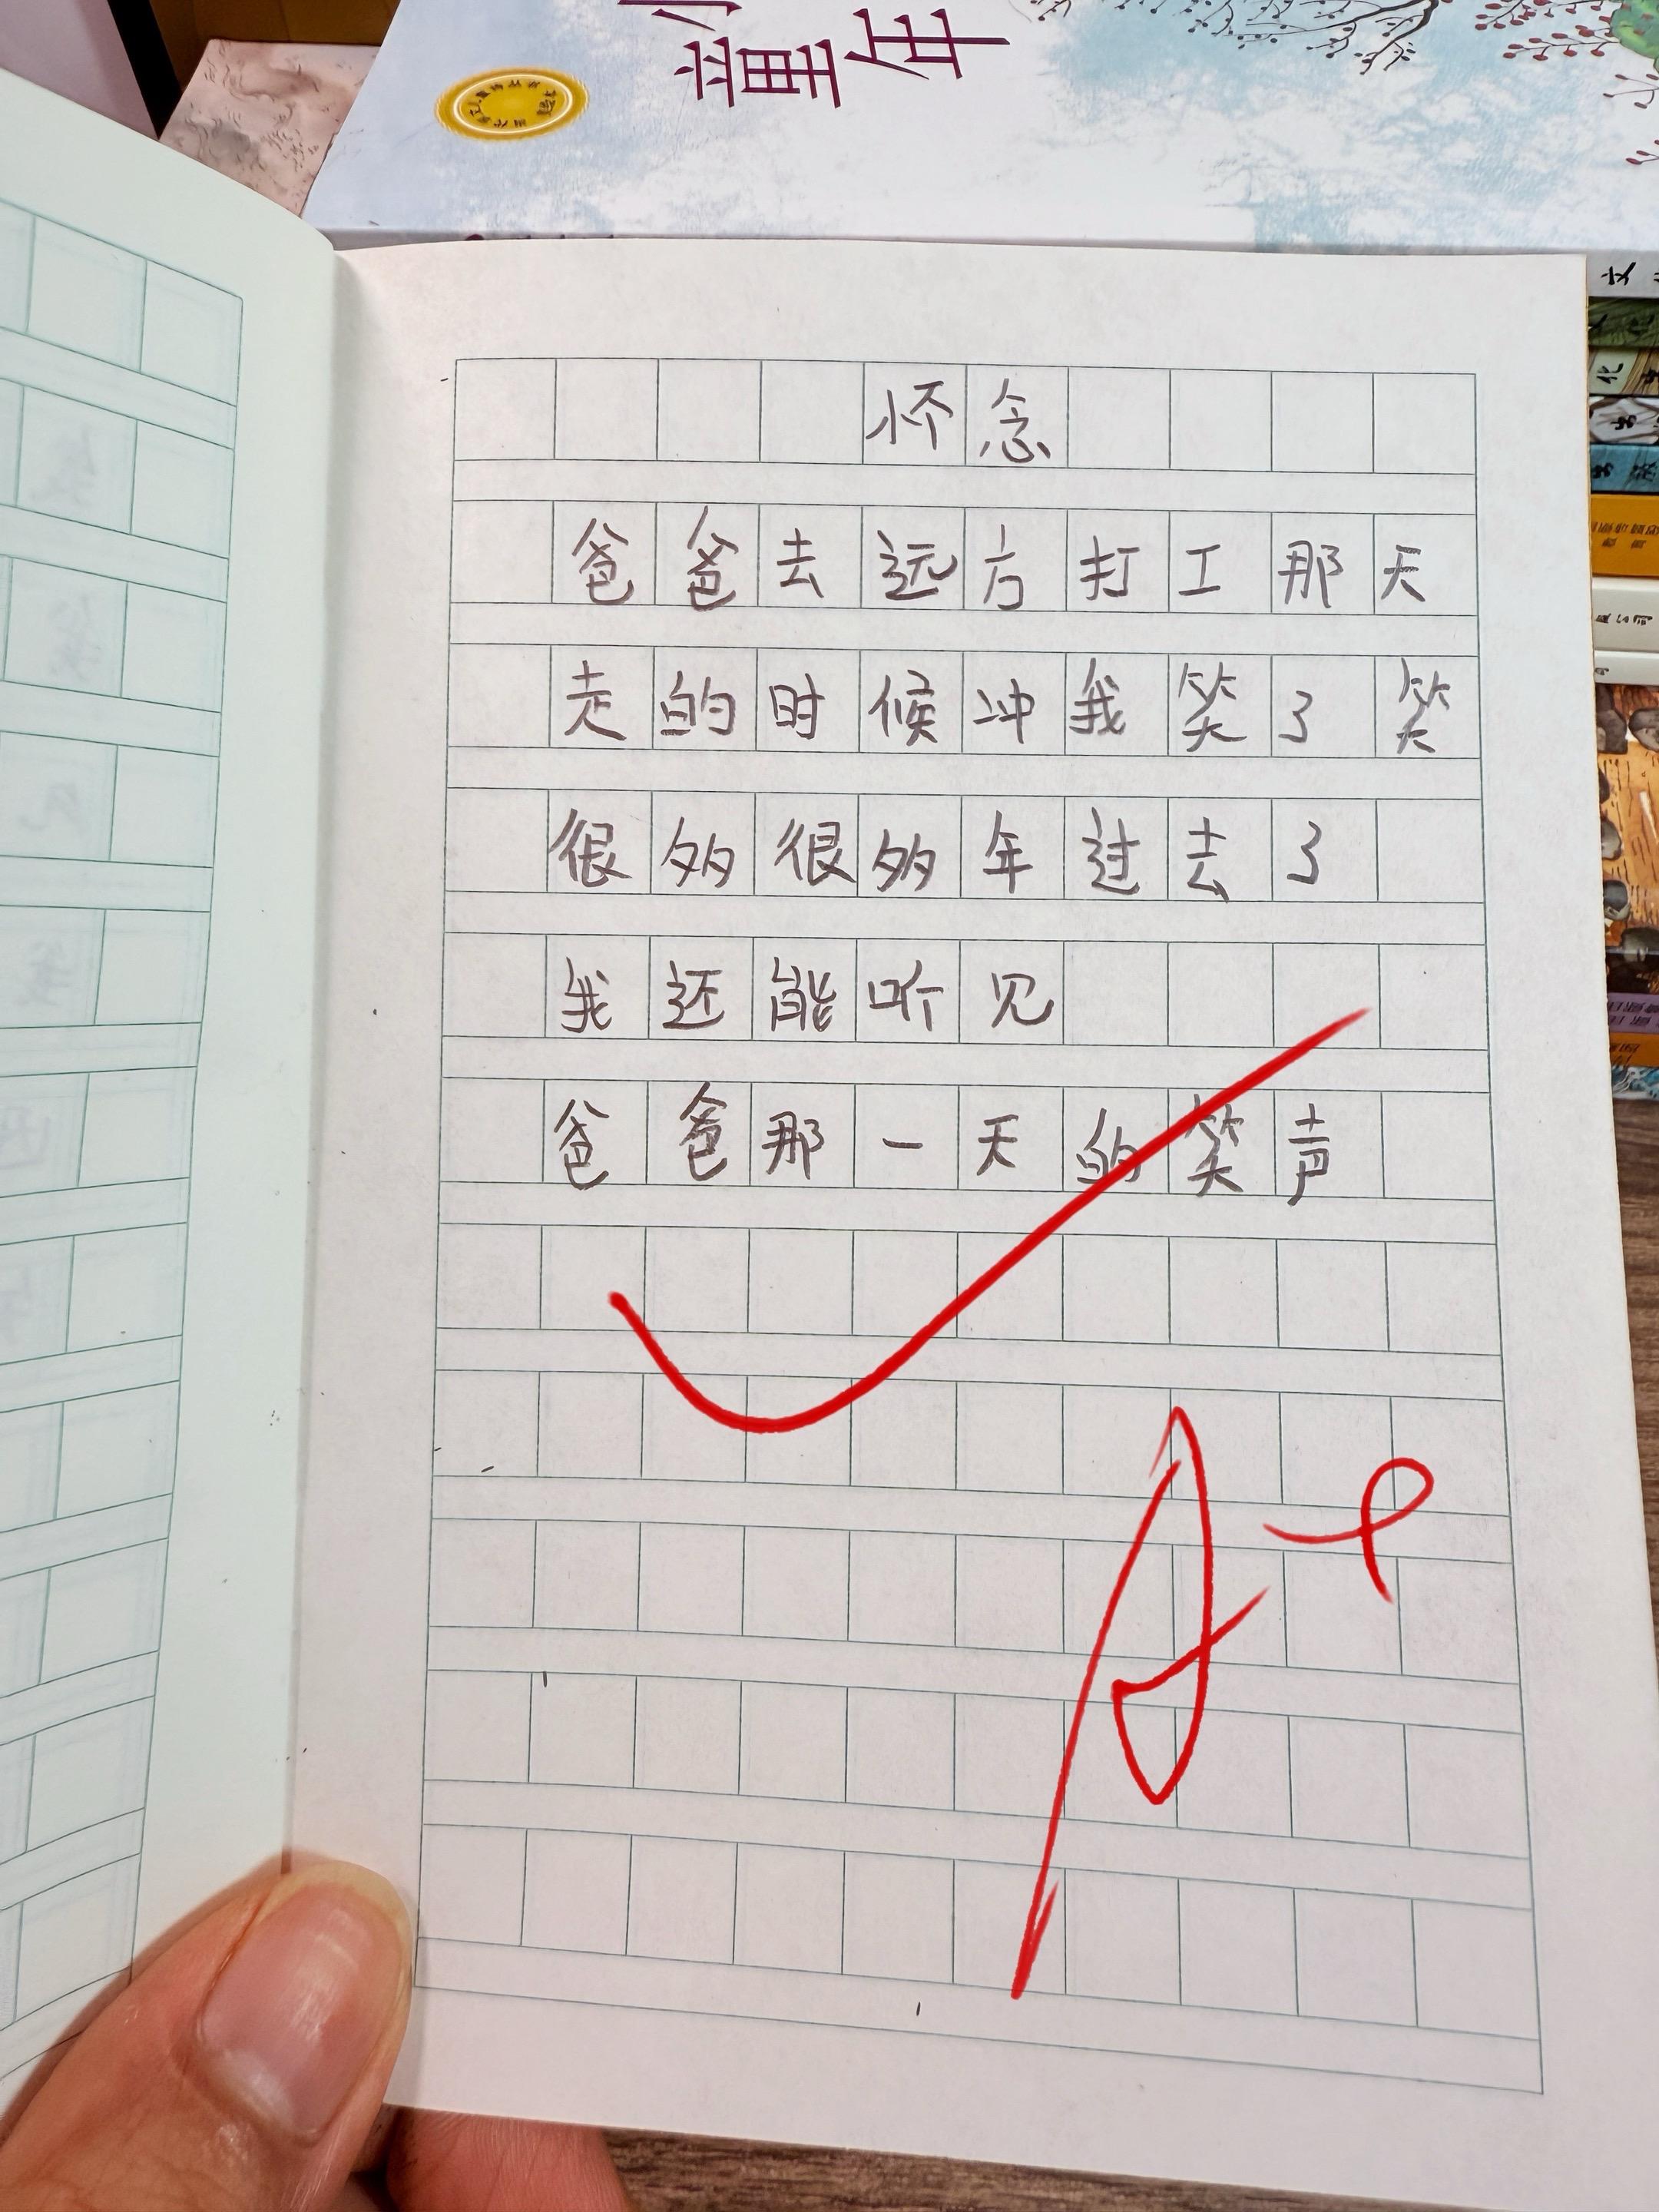 童年
怀念
爸爸去远方打工那天
走的时候冲我笑了笑
很多很多年过去了
我还能听见
爸爸那一天的笑声
A+